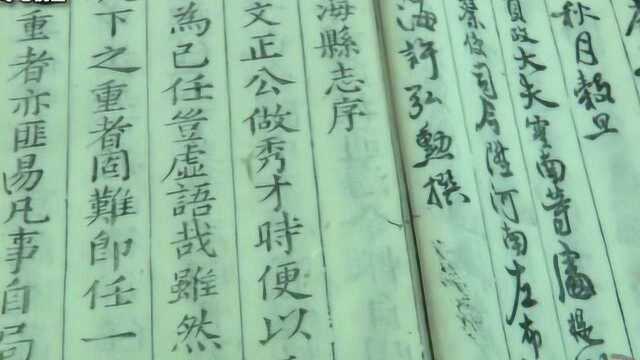 秋月穀旦
政大夫南等處提
察使司今陞河南左布
海許弘勳撰
海縣志序
文正公做秀才時便以
為己任豈虛語哉雖然
下之重者固難即任一
重者亦匪易凡事自局